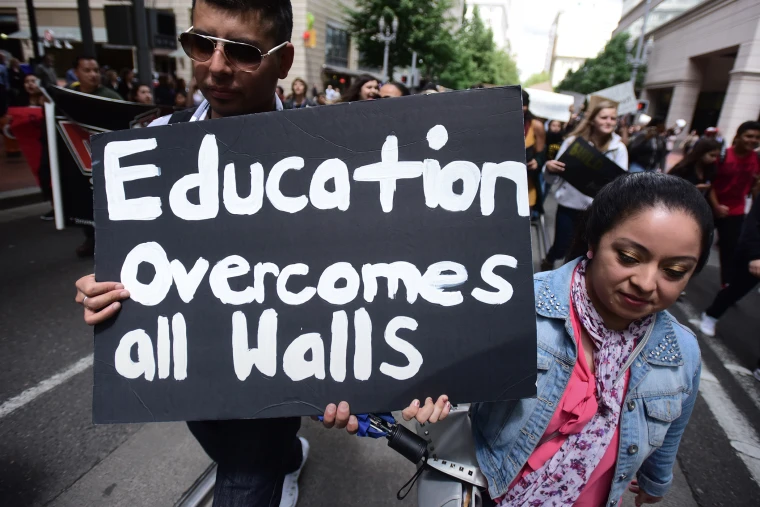 Education
Overcomes
all Walls